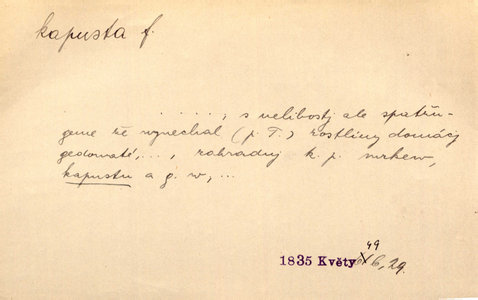 kapusta f.
. . . . . , s nelibostj ale spatřu-
geme že wynechal (p. T.) rostliny domácj
gedowaté, . . . , zahradnj k. p. mrkew,
kapustu a g. w, . . .
49
1835 Květy 6, 29.